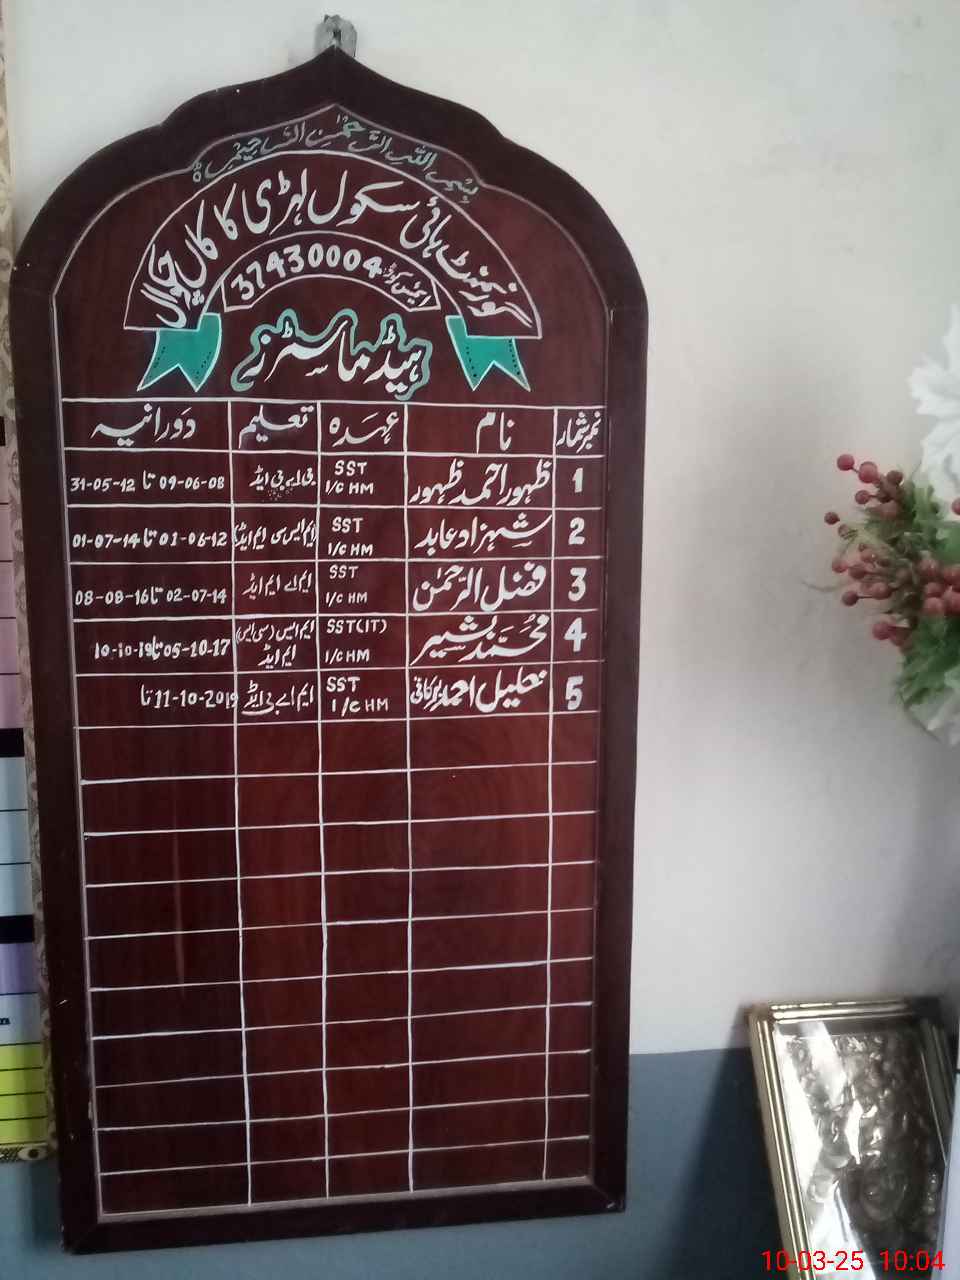 بسم اللہ الرحمن الرحیم
گورنمنٹ ہائی سکول لہڑی کا کاں چکوال
ایمس کوڈ 37430004
ہیڈ ماسٹرز
نمبر شمار نام عہدہ تعلیم دورانیہ
1 ظہور احمد ظہور SST I/C HM بی اے بی ایڈ 09-06-08 تا 31-05-12
2 شہزاد عابد SST I/C HM ایم ایس سی ایم ایڈ 01-06-12 تا 01-07-14
3 فضل الرحمٰن SST I/C HM ایم اے ایم ایڈ 02-07-14 تا 08-08-16
4 محمد بشیر SST(IT) I/C HM ایم ایس (سی ایس) ایم ایڈ 05-10-17 تا 10-10-19
5 احمد SST I/C HM ایم اے بی ایڈ 11-10-2019 تا
10-03-25 10:04